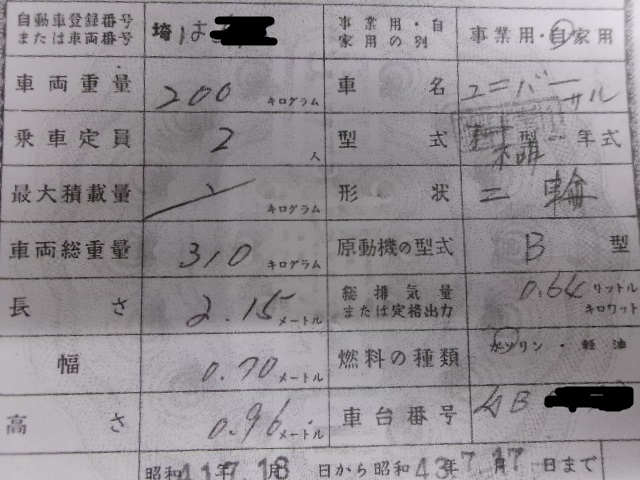 自動車登録番号
または車両番号
埼 は
事業用・自
家用の別
事業用・自家用
車両重量
200 キログラム
車名
ユニバーサル
乗車定員
2 人
型式
型 年式
最大積載量
キログラム
形状
二輪
車両総重量
310 キログラム
原動機の型式
B 型
長さ
2.15 メートル
総排気量
または定格出力
0.64 リットル
キロワット
幅
0.70 メートル
燃料の種類
ガソリン・軽油
高さ
0.96 メートル
車台番号
昭和41年7月18日から昭和43年7月17日まで